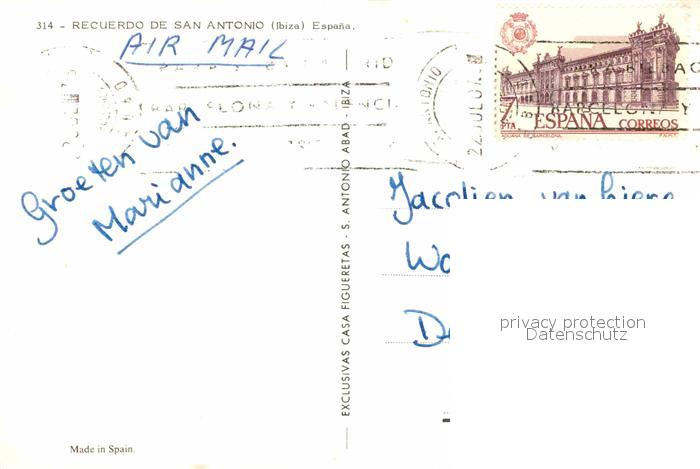 314 - RECUERDO DE SAN ANTONIO (Ibiza) España.
AIR MAIL
BARCELONA Y
22 JUL
7
PTA
ESPAÑA
CORREOS
ADUANA DE BARCELONA.
F.N.M.T.
BARCELONA Y
Groeten van
Marianne.
Jacolien van
privacy protection
Datenschutz
EXCLUSIVAS CASA FIGUERETAS - S. ANTONIO ABAD - IBIZA
Made in Spain.